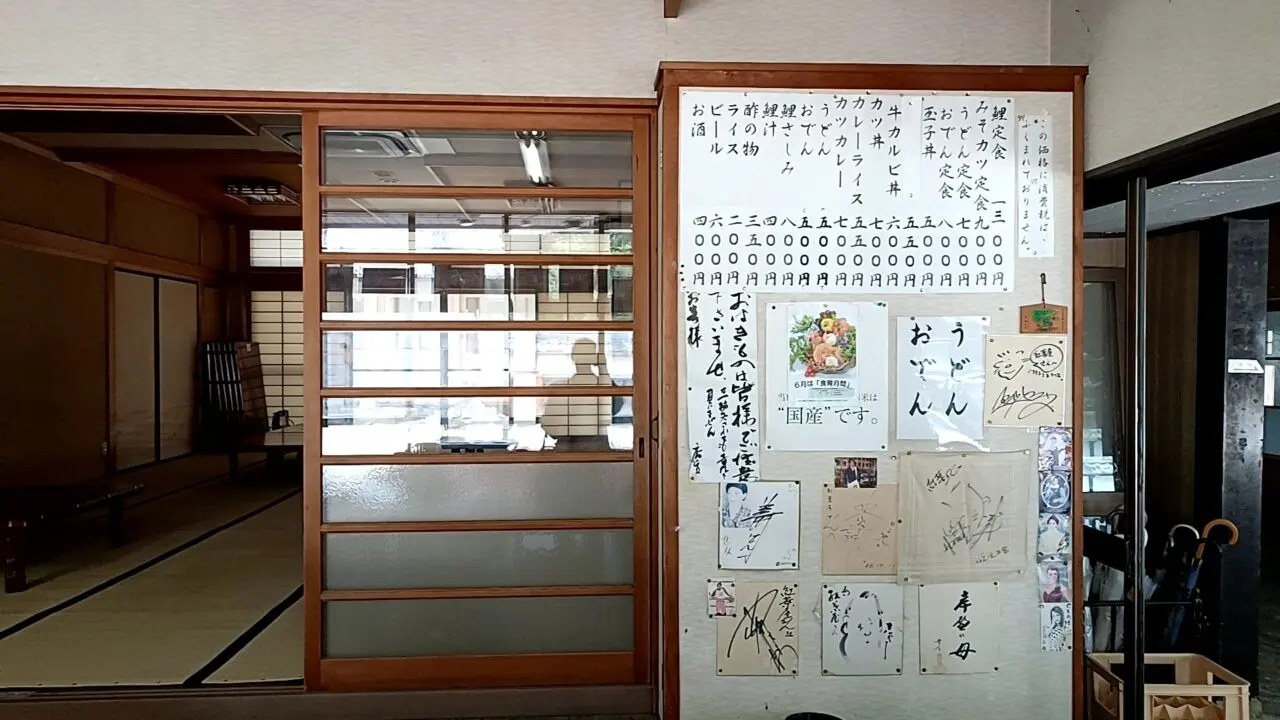 この価格に消費税は、
ふくまれておりません。
鯉定食 一三〇〇円
みそカツ定食 九〇〇円
うどん定食 七〇〇円
おでん定食 八〇〇円
玉子丼 五〇〇円
五五〇円
牛カルビ丼 六〇〇円
カツ丼 七〇〇円
カレーライス 五五〇円
カツカレー 七〇〇円
うどん 五〇〇円
おでん 五〇〇円
鯉さしみ 八〇〇円
鯉汁 四〇〇円
酢の物 三五〇円
ライス 二〇〇円
ビール 六〇〇円
お酒 四〇〇円
おはきものは皆様でご注意
下さいませ、
お客様
6月は「食育月間」
米は
“国産”です。
うどん
おでん
岸壁の母